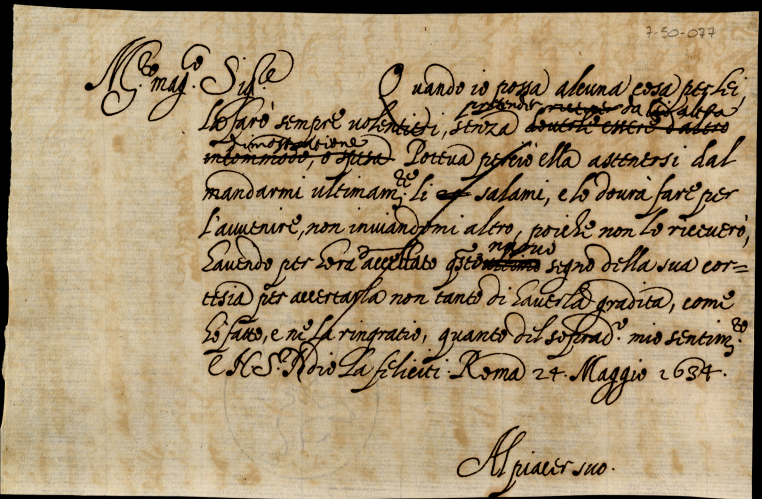 7-50-077
M.to mag.co Sig.re Quando io possa alcuna cosa per lei
pretender da lei altra
lo farò sempre volentieri, senza doverle essere d'altro
dimostratione
incommodo, o spesa. Poteva perciò ella astenersi dal
mandarmi ultimam.te li salami, e lo dovrà fare per
l'avvenire, non inviandomi altro, poiche non lo riceverò,
nuovo
havendo per hora accettato q.sto ultimo segno della sua cor=
tesia per accertarla non tanto di haverla gradita, come
hò fatto, e ne la ringratio, quanto del soprad.o mio sentim.to
E N. S.re Iddio la feliciti. Roma 24. Maggio 1634.
Al piacer suo.